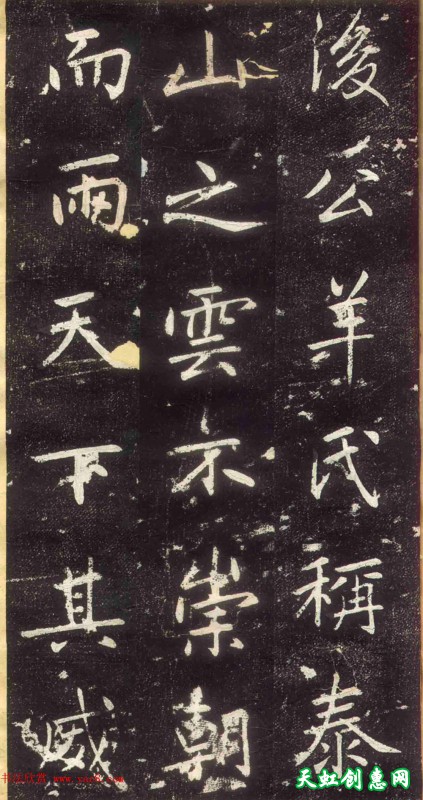 後公羊氏稱泰
山之雲不崇朝
而雨天下其威
书法欣赏
天虹创惠网